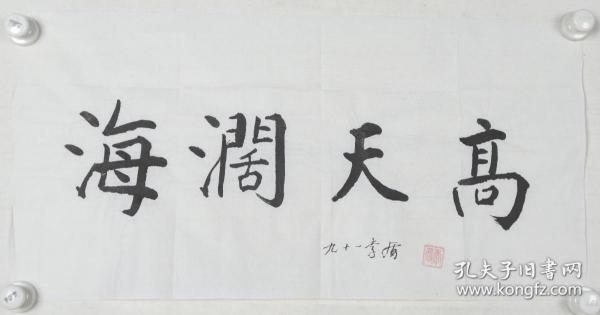 海濶天髙
九十一
孔夫子旧書网
www.kongfz.com